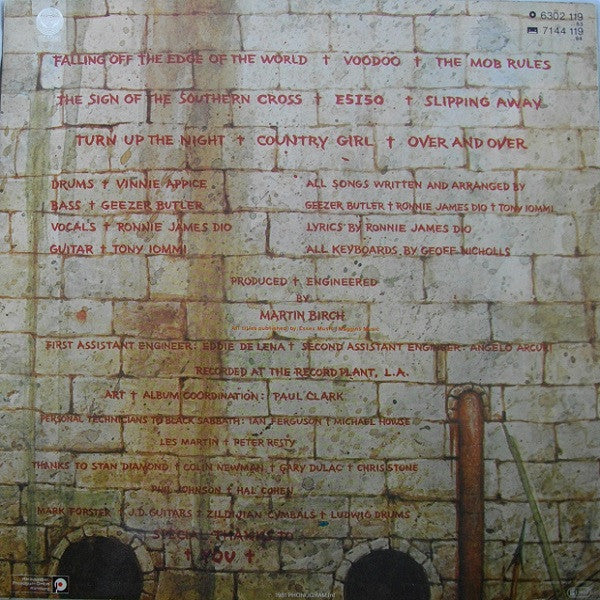 6302 119
7144 119
FALLING OFF THE EDGE OF THE WORLD † VOODOO † THE MOB RULES
THE SIGN OF THE SOUTHERN CROSS † E5150 † SLIPPING AWAY
TURN UP THE NIGHT † COUNTRY GIRL † OVER AND OVER
DRUMS † VINNIE APPICE
BASS † GEEZER BUTLER
VOCALS † RONNIE JAMES DIO
GUITAR † TONY IOMMI
ALL SONGS WRITTEN AND ARRANGED BY
GEEZER BUTLER † RONNIE JAMES DIO † TONY IOMMI
LYRICS BY RONNIE JAMES DIO
ALL KEYBOARDS BY GEOFF NICHOLLS
PRODUCED † ENGINEERED
BY
MARTIN BIRCH
All titles published by: Essex Music/Niggins Music
FIRST ASSISTANT ENGINEER: EDDIE DE LENA † SECOND ASSISTANT ENGINEER: ANGELO ARCURI
RECORDED AT THE RECORD PLANT, L.A.
ART † ALBUM COORDINATION: PAUL CLARK
PERSONAL TECHNICIANS TO BLACK SABBATH: IAN FERGUSON † MICHAEL HOWSE
LES MARTIN † PETER RESTY
THANKS TO STAN DIAMOND † COLIN NEWMAN † GARY DULAC † CHRIS STONE
PHIL JOHNSON † HAL COHEN
MARK FORSTER † J.D. GUITARS † ZILDJIAN CYMBALS † LUDWIG DRUMS
SPECIAL THANKS TO
† YOU †
1981 PHONOGRAM